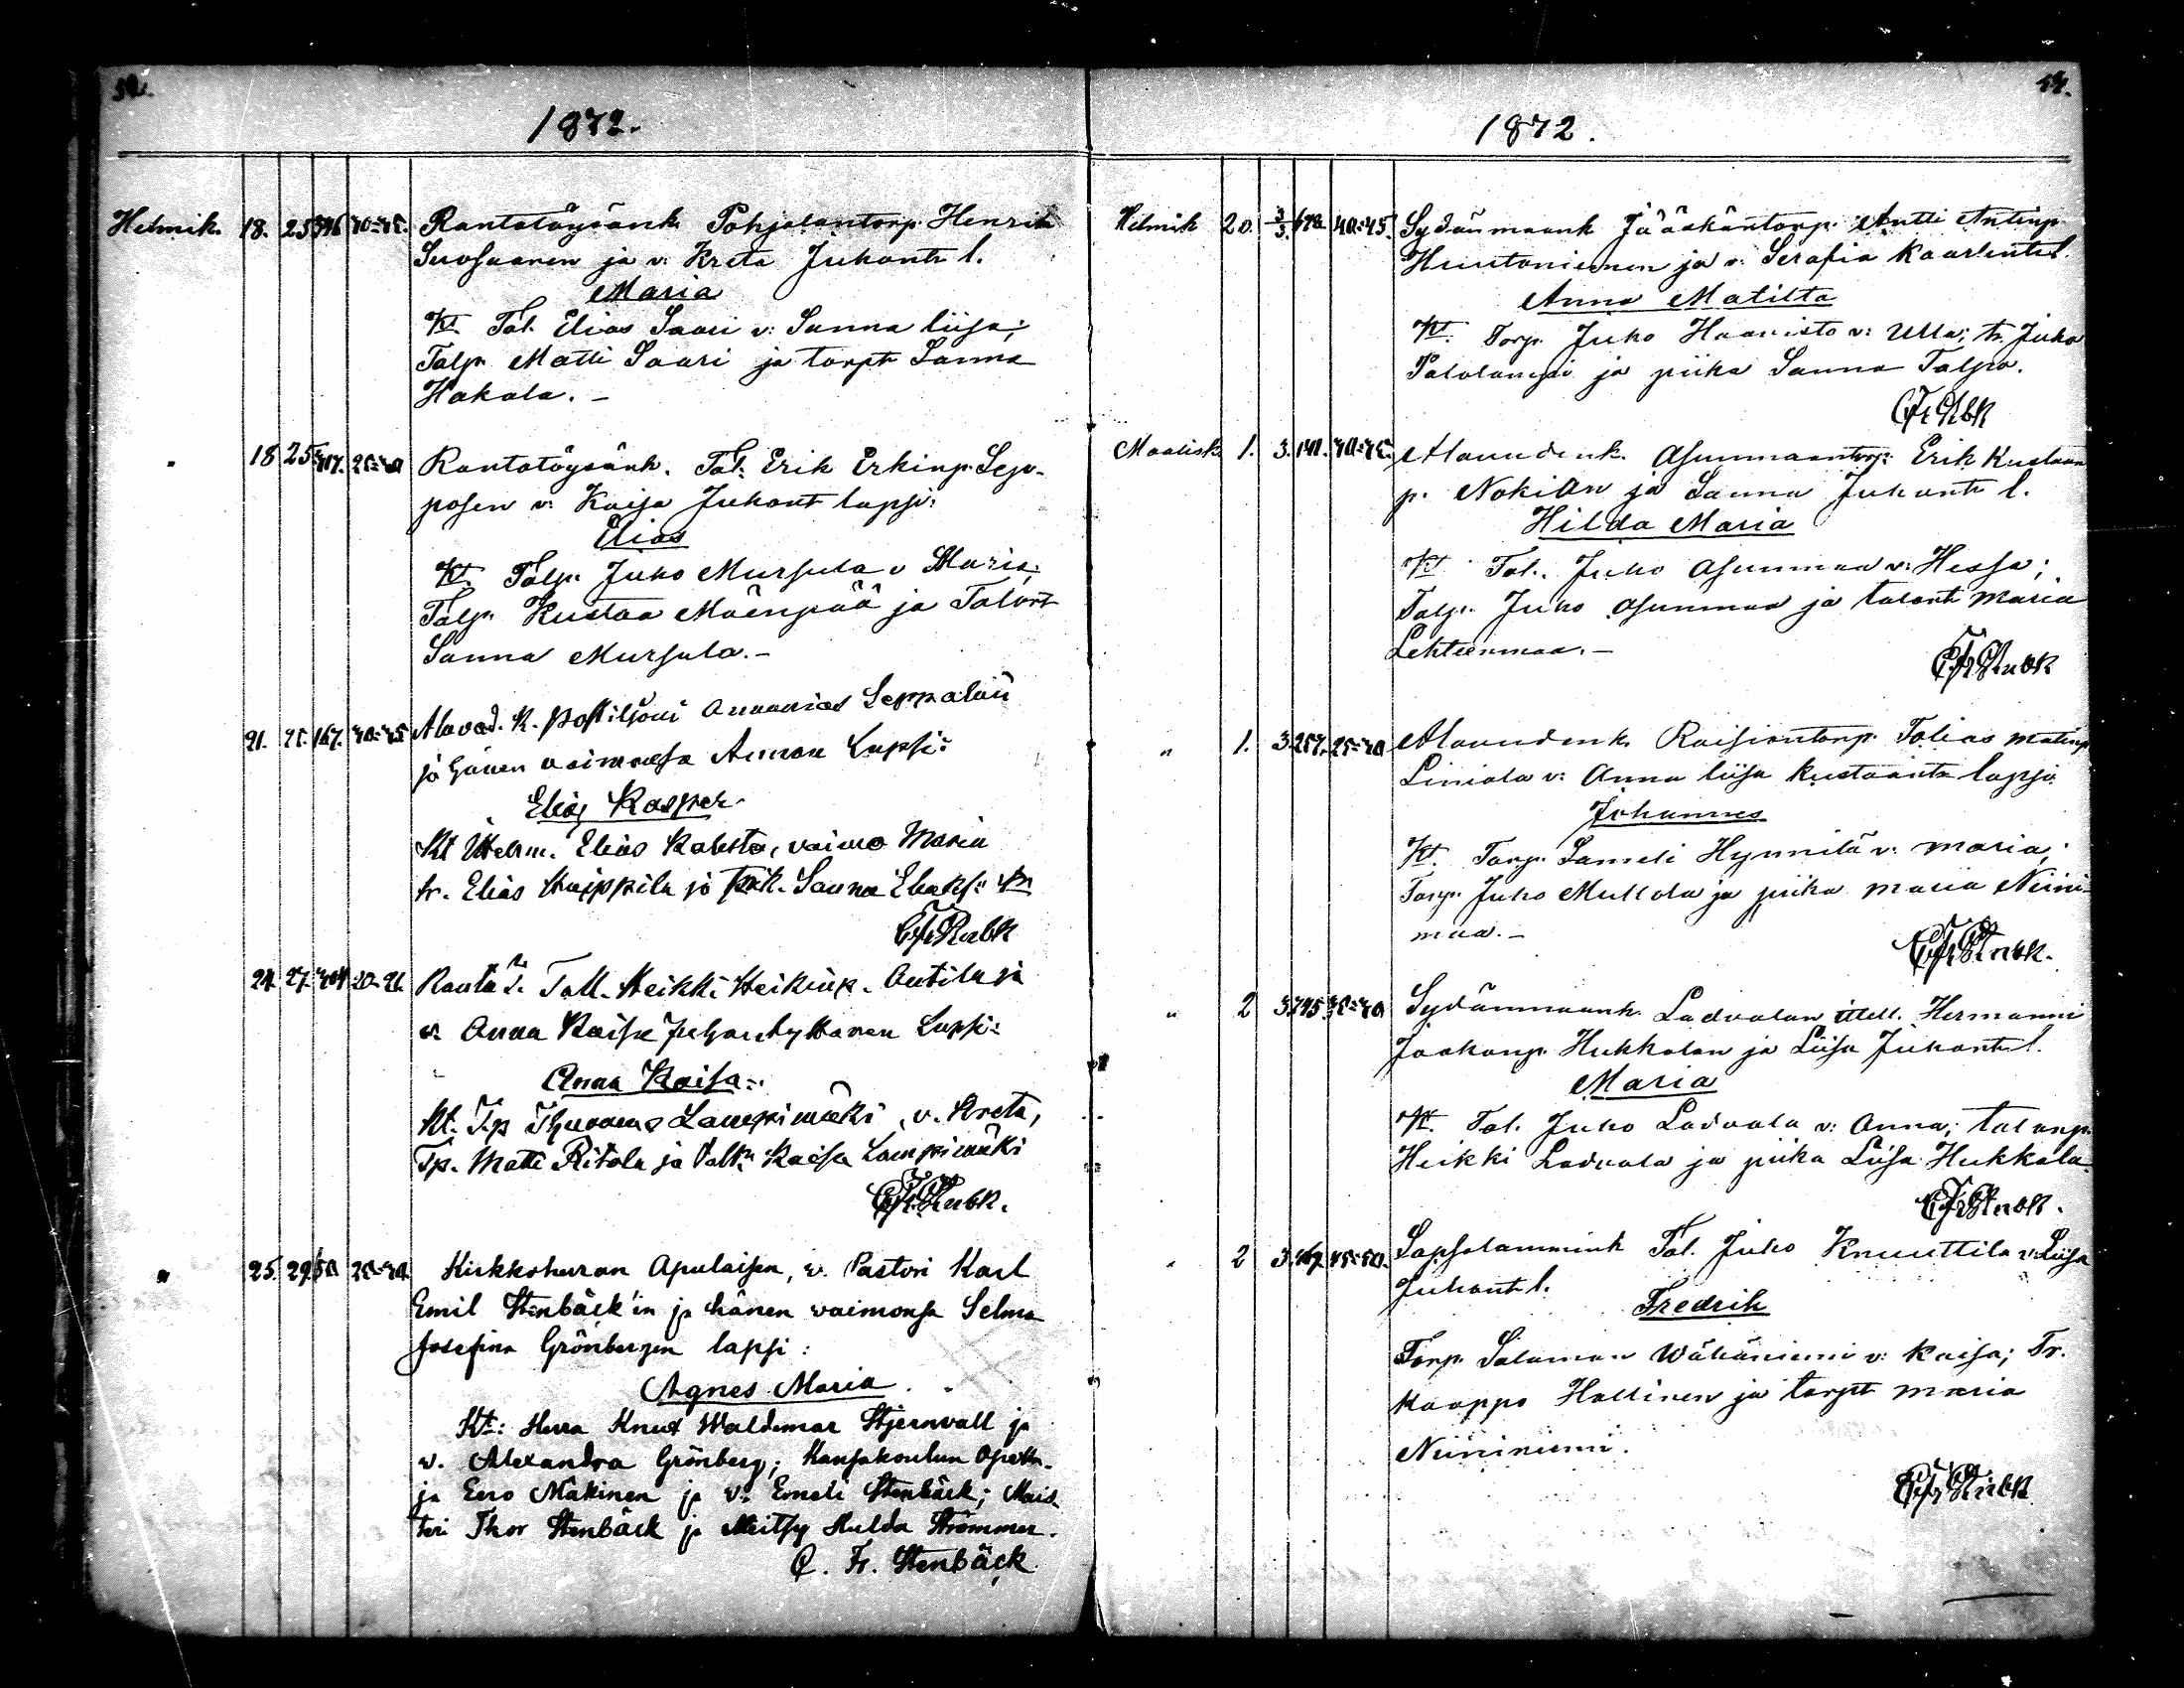 1872.
Helmik. 18. 25 346 40-45. Rantatöysänk. Pohjolantorp. Henrik
Suosaaren ja v: Kreta Juhontr l.
Maria
Kt. Tal. Elias Saari v: Sanna liisa;
Talp. Matti Saari ja torptr Sanna
Hakola. –
" 18 25 25-30 Rantatöysänk. Tal. Erik Erkinp. Sep-
posen v: Kaisa Juhontr lapsi:
Elias
Kt. Talp. Juho Mursula v Maria;
Talp. Kustaa Mäenpää ja Talontr
Sanna Mursula. –
21. 25. 167. 40-45 Alavud. k. Postiljoni Ananias Leppälän
ja hänen vaimonsa Annan Lapsi:
Elias Kasper
Kt Elias vaimo Maria
tr. Elias ja Sanna
24. 27. 20-25. Ranta T. Tall. Heikki Heikinp. Antila ja
v. Anna Kaisa Juhontyttären Lapsi:
Anna Kaisa
Kt. T.p Thomas Lampimäki, v. Kreta,
Tp. Matti Ritola ja Kaisa Lampimäki
" 25. 29. 50 25-30. Kirkkoherran Apulaisen, v. Pastori Karl
Emil Stenbäck'in ja hänen vaimonsa Selma
Josefina Grönbergen lapsi:
Agnes Maria
Kt: Herra Knut Waldemar Stjernvall ja
v. Alexandra Grönberg; Kansakoulun Opetta-
ja Eero Mäkinen ja v: Emeli Stenbäck; Mais-
teri Thor Stenbäck ja Neitsy Hulda Strömmer.
C. Fr. Stenbäck
1872.
Helmik 20. 3/3 40-45. Sydänmaank Jääskäntorp. Antti Antinp.
Huutoniemen ja v: Serafia Kaarlentr l.
Anna Matilta
Kt. Torp. Juho Haavisto v: Ulla; tr. Juho
Palolampi ja piika Sanna Talpo.
Maalisk. 1. 3. 141. 40-45. Alavudenk. Asunmaantorp: Erik Kustaan
p. Nokian ja Sanna Juhontr l.
Hilda Maria
Kt Tal. Juho Asunmaa v: Hessa;
Talp. Juho Asunmaa ja talontr Maria
Lehtienmaa. –
" 1. 3. 257. 25-30 Alavudenk. Raisiontorp. Tobias Matinp
Liniala v: Anna liisa Kustaantr lapsi
Johannes
Kt. Torp. Sameli Hynnilä v: Maria;
Torp. Juho Mullola ja piika Maria Niini-
maa. –
" 2 3. 745 Sydänmaank. Ladvalan ittell. Hermanni
Jaakonp. Hukkalan ja Liisa Juhontr l.
Maria
Kt. Tal. Juho Ladvala v: Anna; talonp.
Heikki Ladvala ja piika Liisa Hukkala.
" 2 3. 45-50. Sapsalammink Tal. Juho Knuuttila v: Liisa
Juhontr l.
Fredrik
Torp. Salomon Wähäniemi v: Kaisa; Tr.
Kaappo Hallinen ja torptr Maria
Niininiemi.